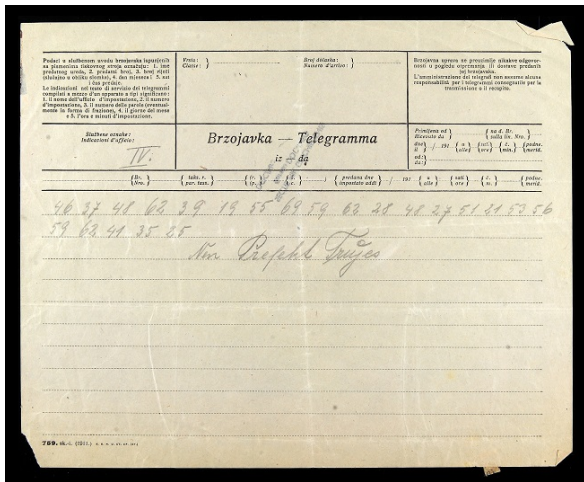 Podaci u službenom uvodu brzojavke ispunjenih
sa pismenima tiskovnog stroja označuju: 1. ime
predatnog ureda, 2. predatni broj, 3. broj riječi
4. dan mjeseca i 5. sat
i čas predaje.
Le indicazioni nel testo di servizio dei telegrammi
compilati a mezzo d'un apparato a tipi significano:
1. il nome dell'ufficio d'impostazione, 2. il numero
d'impostazione, 3. il numero delle parole (eventual-
mente in forma di frazione), 4. il giorno del mese
e 5. l'ora e minuti d'impostazione.
Vrsta:
Classe:
Broj dolaska:
Numero d'arrivo:
Brzojavna uprava ne preuzimlje nikakve odgovor-
nosti u pogledu otpremanja ili dostave predanih
joj brzojavka.
L'amministrazione dei telegrafi non assume alcuna
responsabilità per i telegrammi consegnatile per la
trasmissione o il recapito.
Službene oznake:
Indicazioni d'ufficio:
IV.
Brzojavka — Telegramma
iz da
Primljena od
Ricevuto da
na d. Br.
sulla lin. Nro.
dne
il
191
u
alle
sati
ore
č.
min.
podne.
merid.
od:
da:
Br.
Nro.
taks. r.
par. tas.
predana dne
impostato addì
191
u
alle
sati
ore
č.
m.
podne.
merid.
46 37 48 62 39 19 55 69 59 62 28 48 27 51 21 53 56
59 62 41 35 25
Prefekt
769.